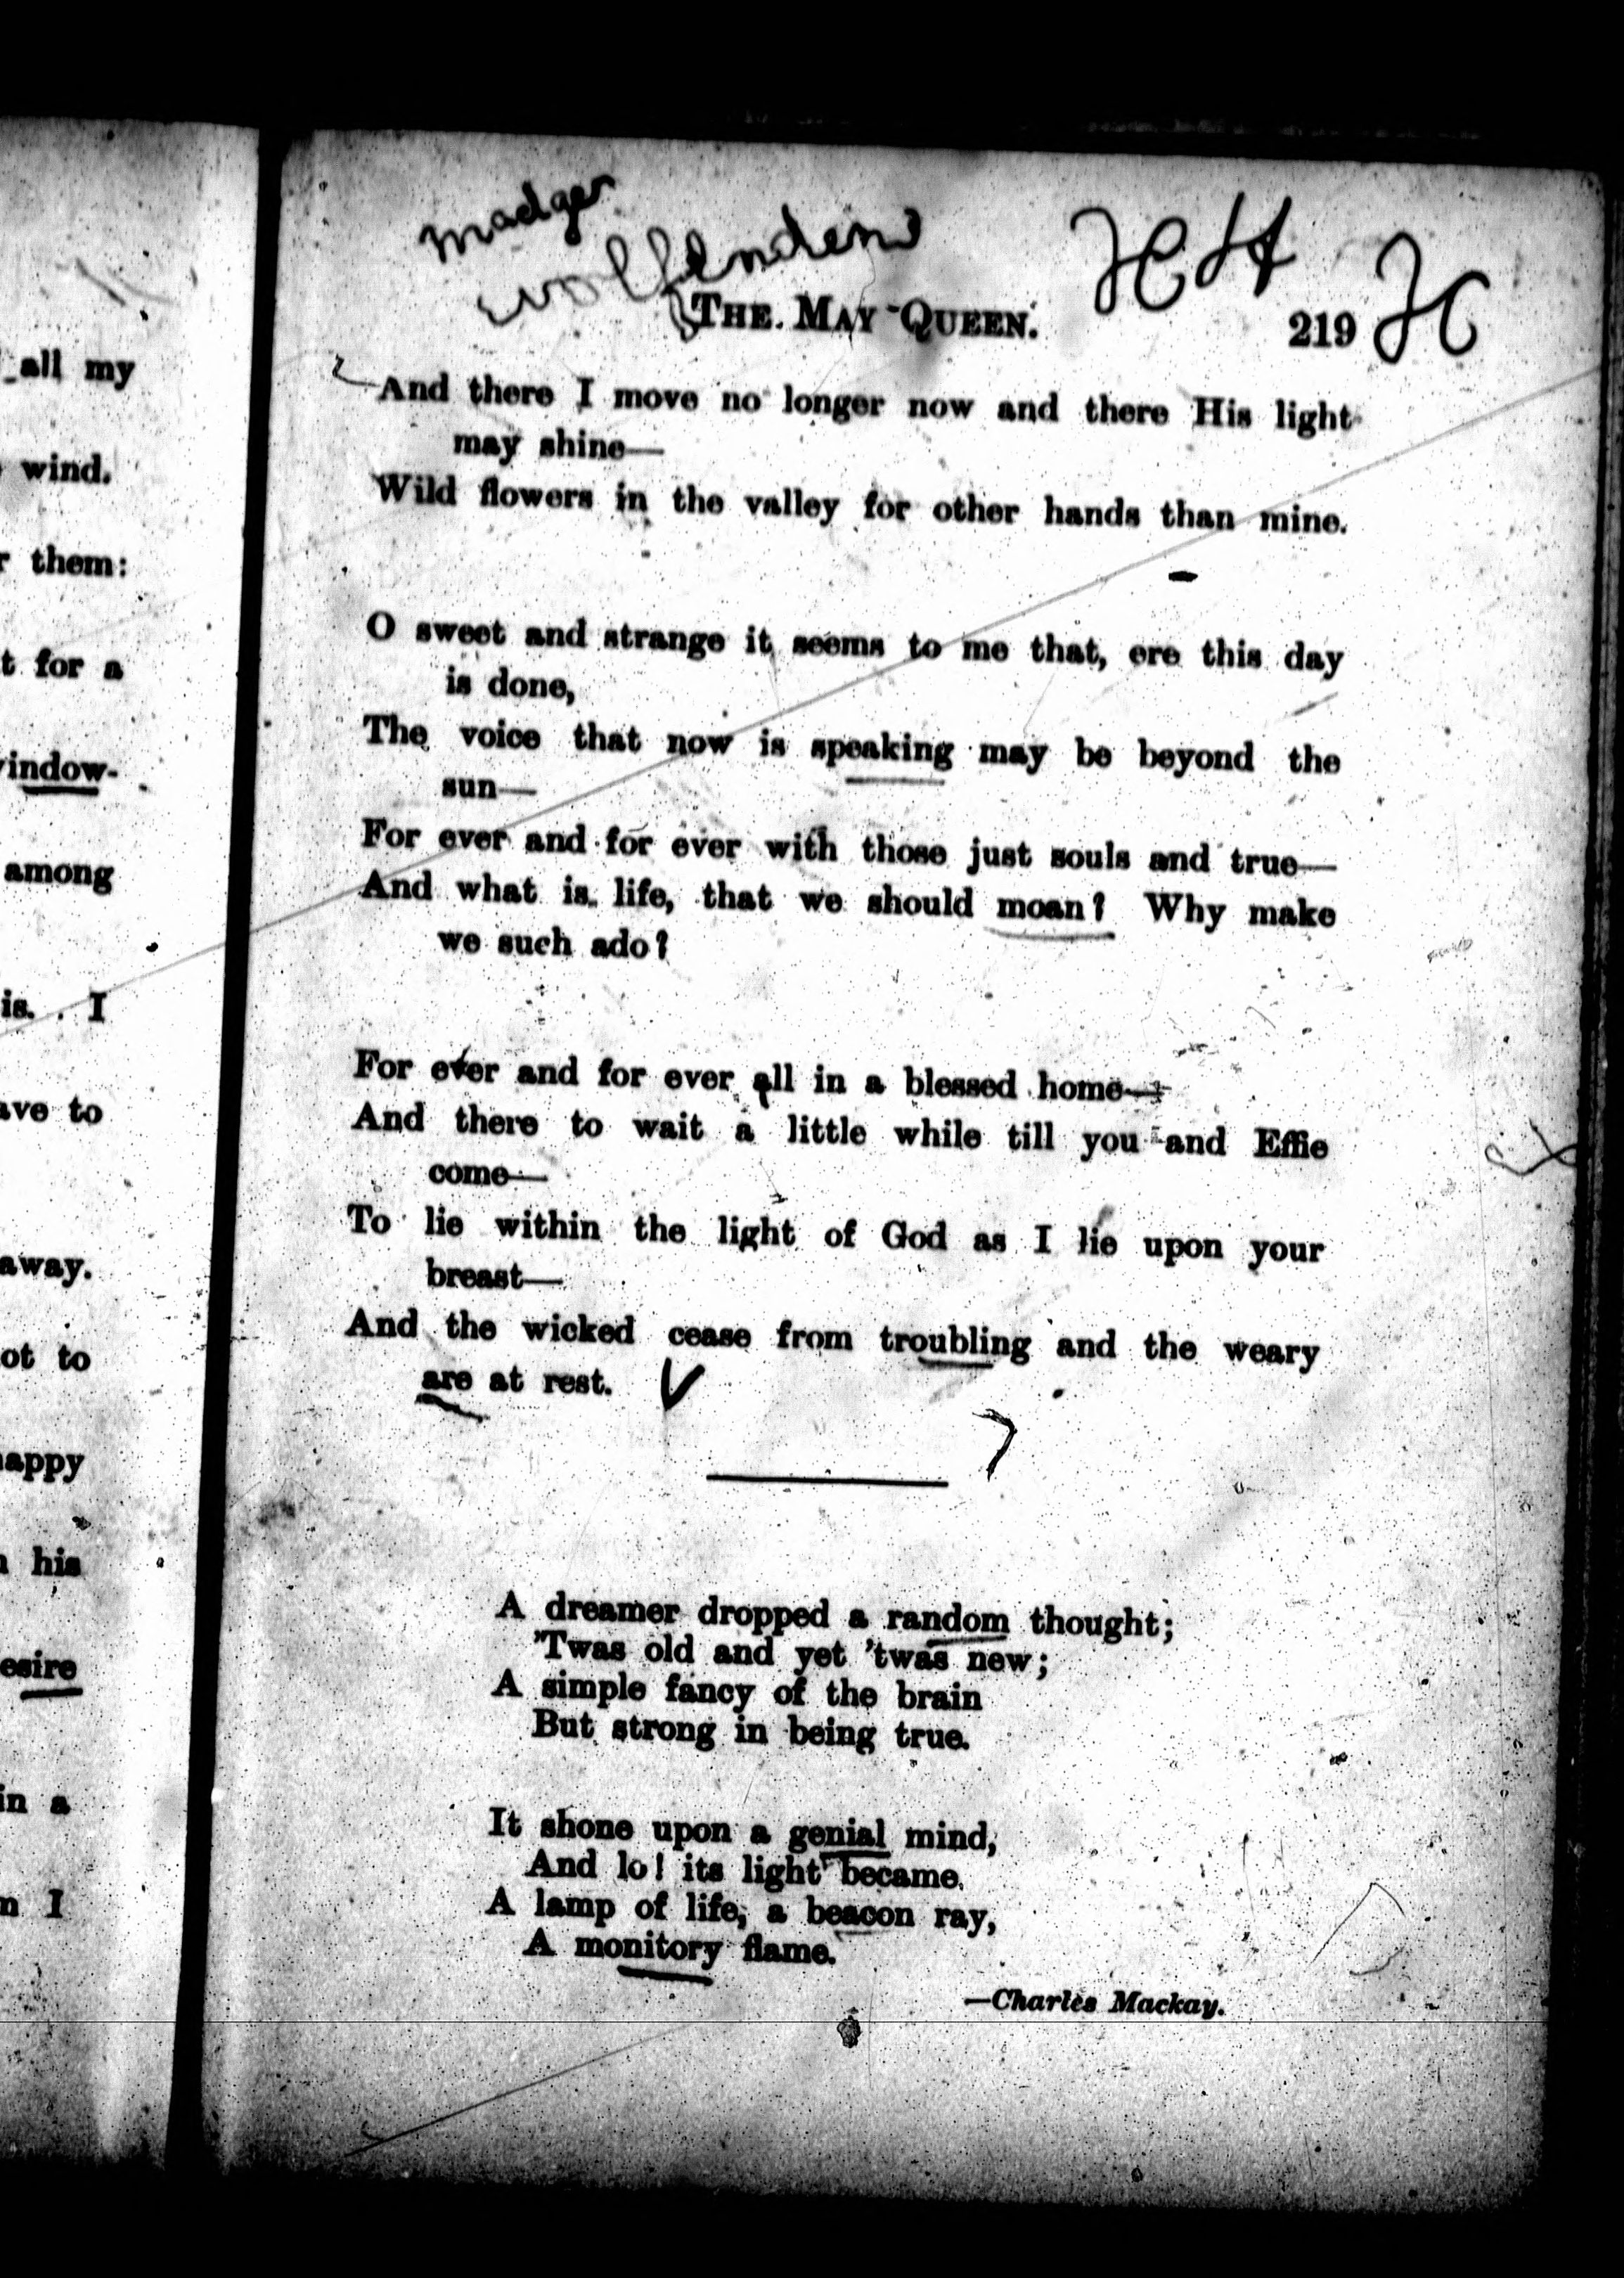 all my
wind.
them:
t for a
window-
among
is. I
ave to
away.
ot to
happy
his
esire
in a
n I
madge
wolfenden
H H H
THE MAY QUEEN.
219
And there I move no longer now and there His light
may shine—
Wild flowers in the valley for other hands than mine.
O sweet and strange it seems to me that, ere this day
is done,
The voice that now is speaking may be beyond the
sun—
For ever and for ever with those just souls and true—
And what is life, that we should moan? Why make
we such ado?
For ever and for ever all in a blessed home—
And there to wait a little while till you and Effie
come—
To lie within the light of God as I lie upon your
breast—
And the wicked cease from troubling and the weary
are at rest.
A dreamer dropped a random thought;
'Twas old and yet 'twas new;
A simple fancy of the brain
But strong in being true.
It shone upon a genial mind,
And lo! its light became
A lamp of life, a beacon ray,
A monitory flame.
—Charles Mackay.